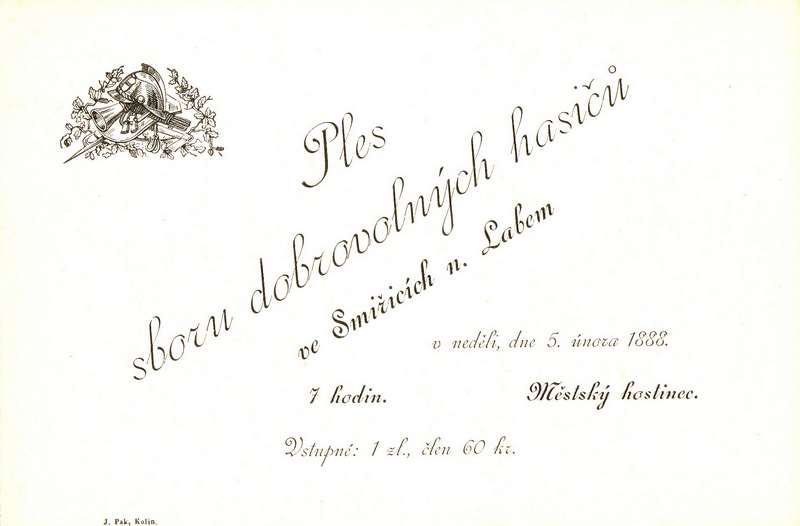 Ples
sboru dobrovolných hasičů
ve Smiřicích n. Labem
v neděli, dne 5. února 1888.
7 hodin. Městský hostinec.
Vstupné: 1 zl., člen 60 kr.
J. Pak, Kolín.